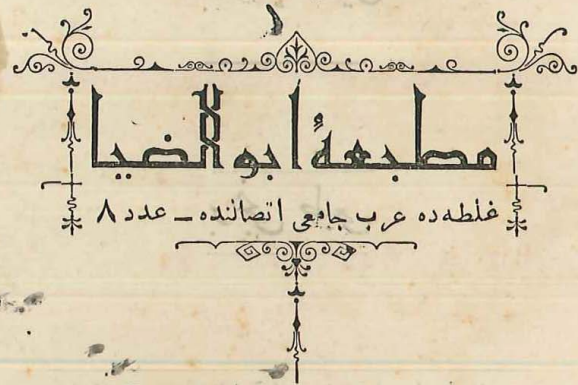 مطبعهٔ ابو الضيا
غلطه‌ده عرب جامعی اتصالنده ــ عدد ٨